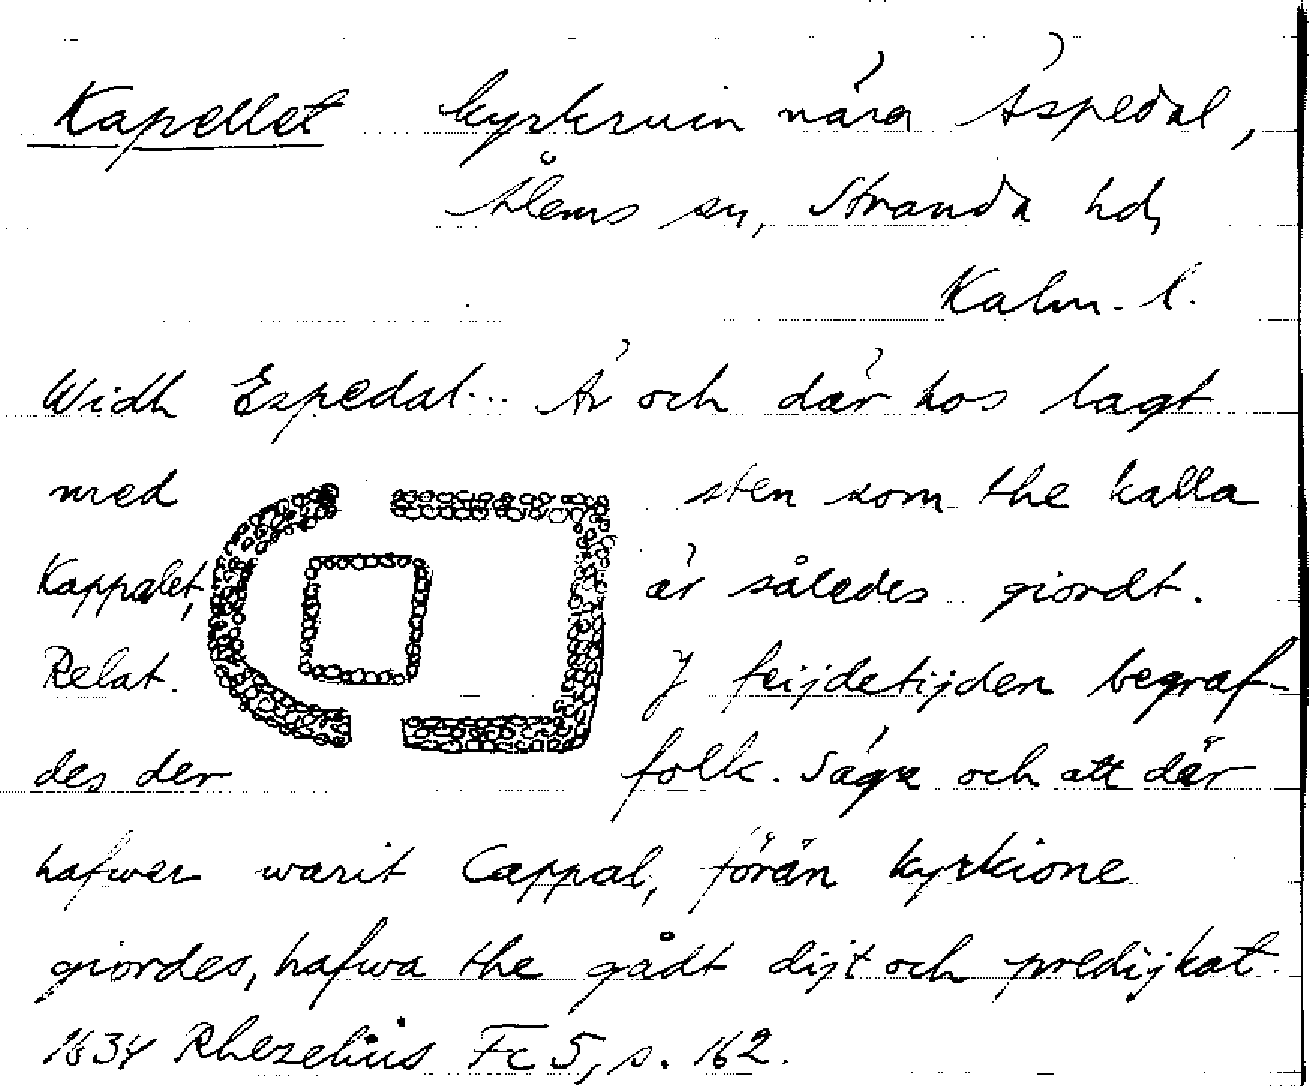 Kapellet kyrkruin nära Äspedal,
Ålems sn, Stranda hd,
Kalm. l.
Widh Espedal... Är och där hos lagt
med sten som the kalla
Kappalet, är således giordt.
Relat. J feijdetijden begraf-
des der folk. Säga och att där
hafwer warit Cappal, förän kyrkione
giordes, hafwa the gådt dijt och predijkat.
1634 Rhezelius Fc 5, s. 162.